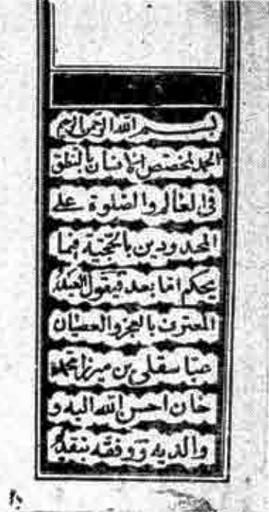 بسم الله الرحمن الرحيم
الحمد لمخصص الانسان بالنطق
في العالم والصلوة على
المحدودين بالحجية فيما
يحكم اما بعد فيقول العبد
المعترف بالعجز والعصيان
عباسقلى بن ميرزا محمد
خان احسن الله اليه و
والديه ووفقه